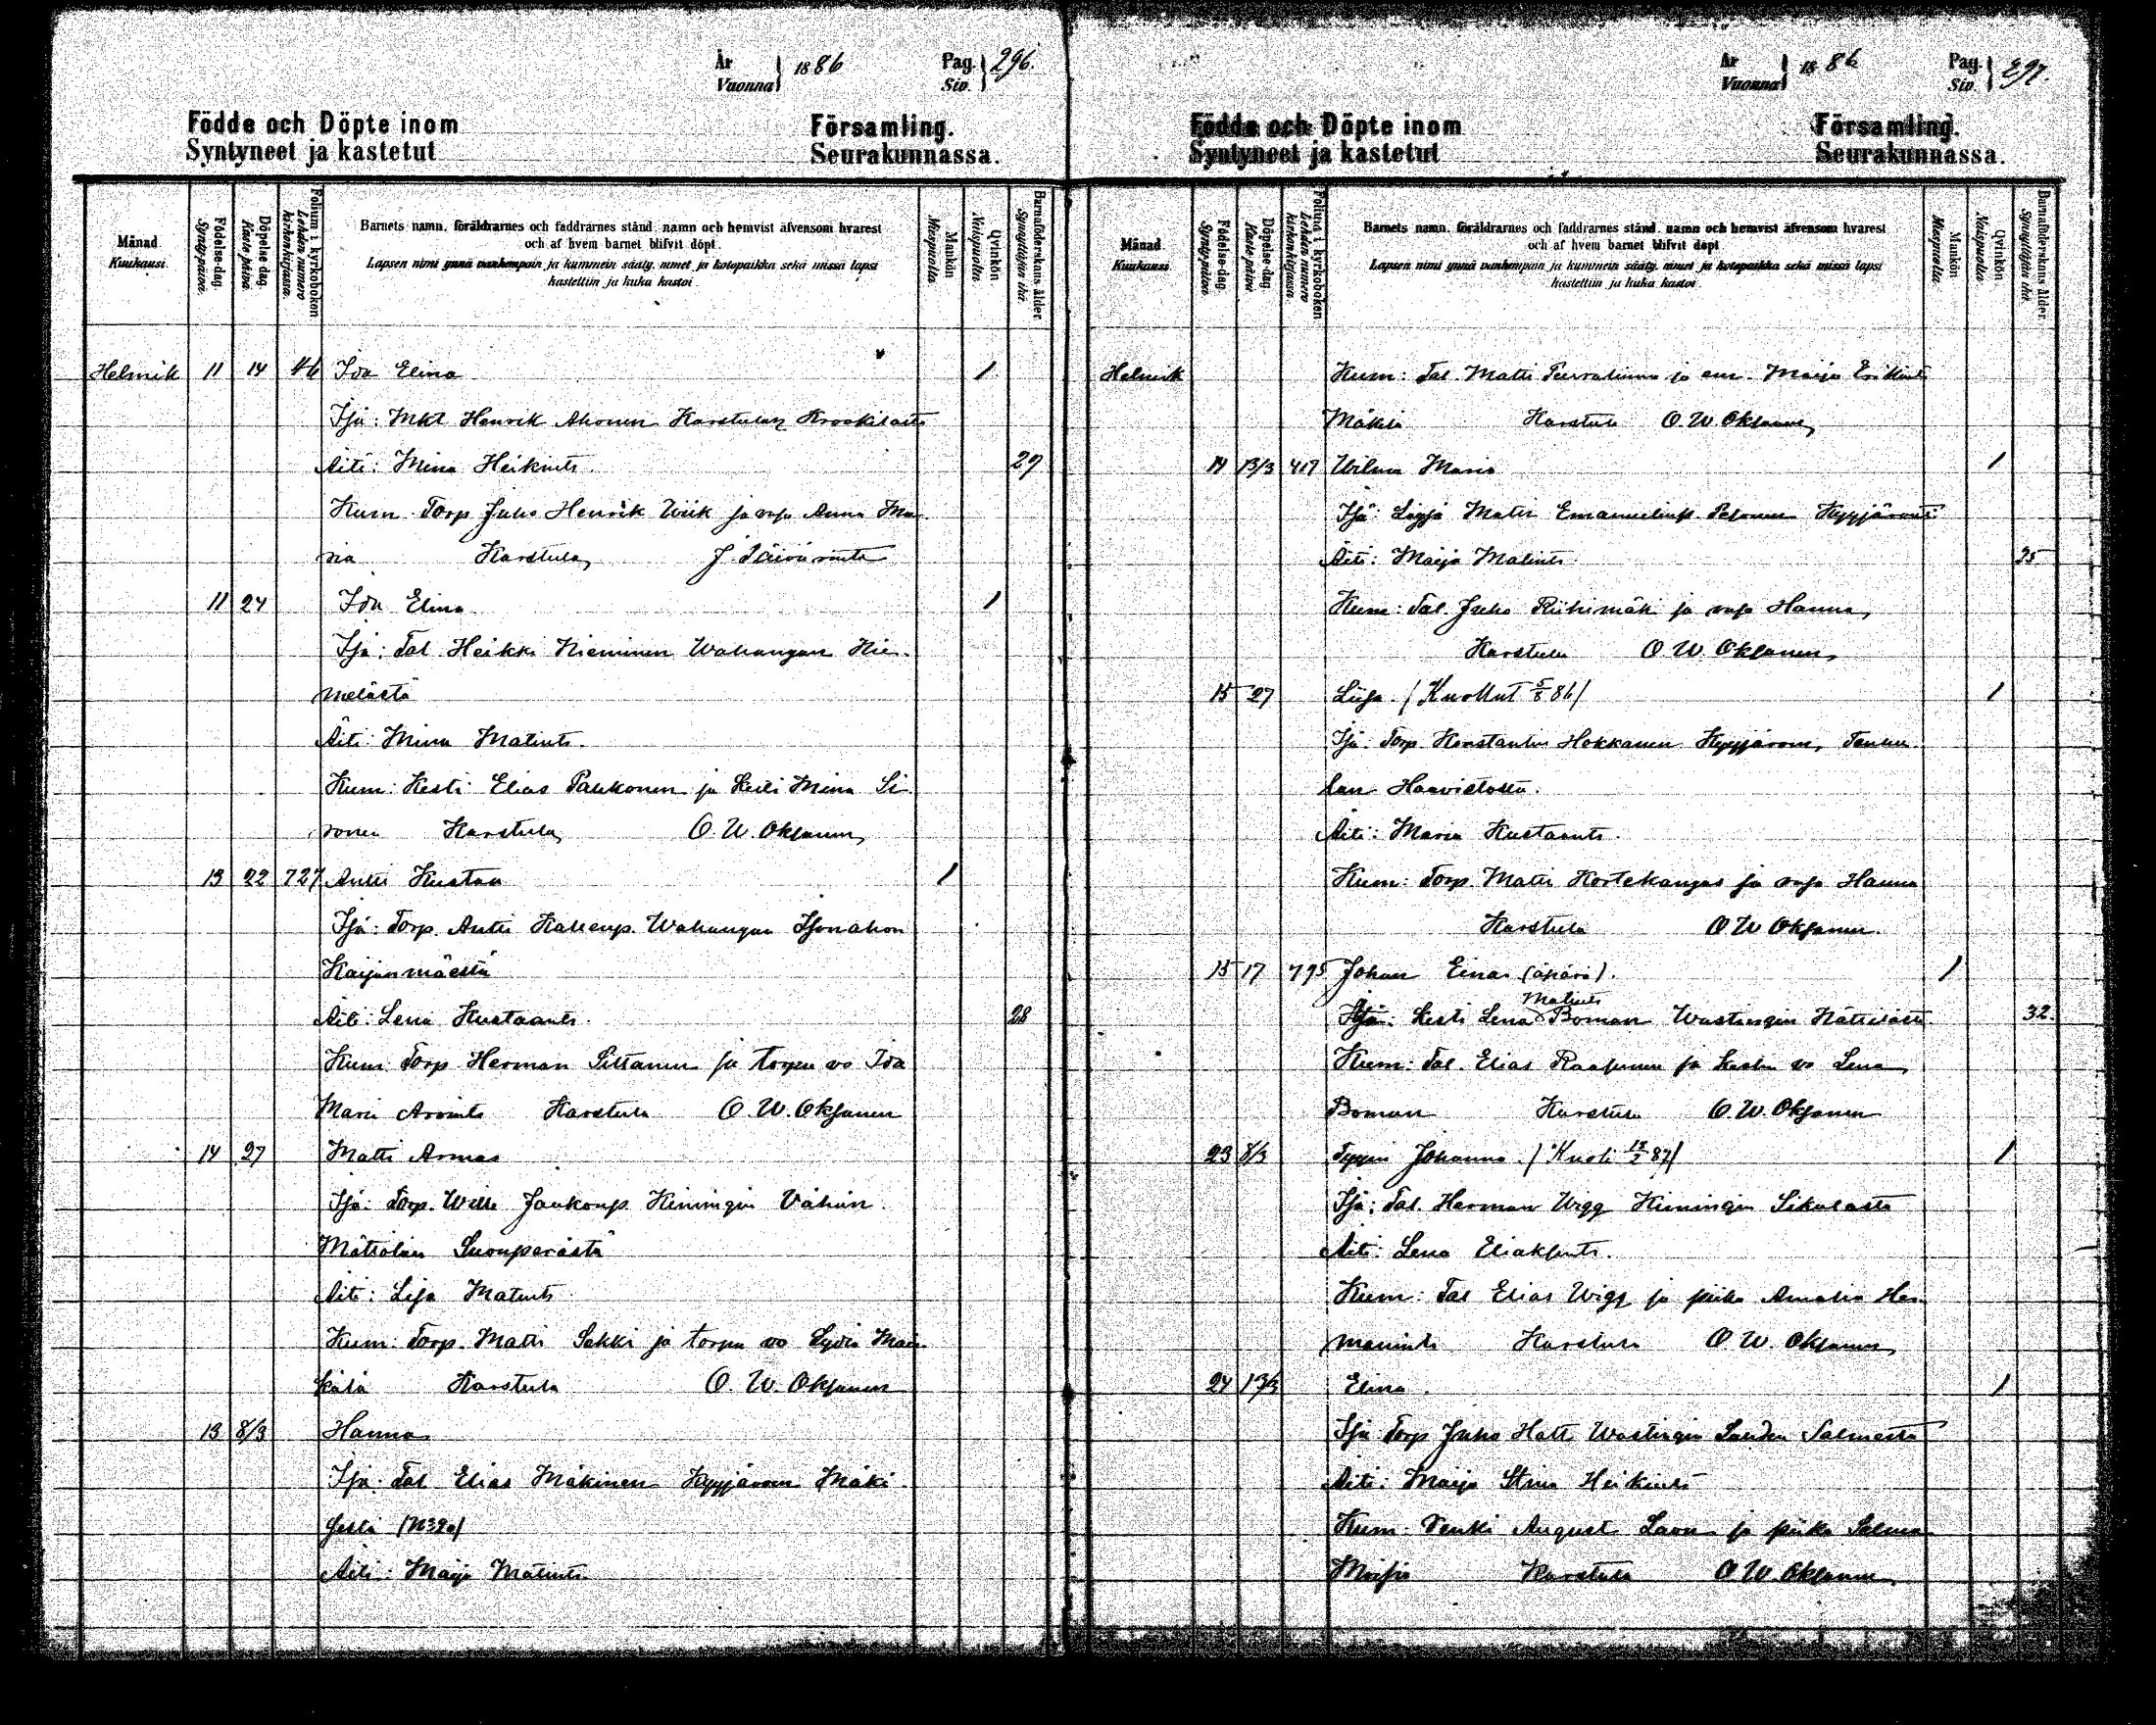 År
Vuonna } 1886
Pag.
Siv. } 296.
Födde och Döpte inom Församling.
Syntyneet ja kastetut Seurakunnassa.
Månad.
Kuukausi.
Födelse-dag.
Synty-päivä.
Döpelse dag.
Kaste-päivä.
Folium i kyrkoboken.
Lehden numero kirkonkirjassa.
Barnets namn, föräldrarnes och faddrarnes stånd, namn och hemvist äfvensom hvarest
och af hvem barnet blifvit döpt.
Lapsen nimi ynnä vanhempain ja kummein sääty, nimet ja kotopaikka sekä missä lapsi
kastettiin ja kuka kastoi.
Mankön
Miespuolia.
Qvinkön
Naispuolia.
Barnaföderskans ålder.
Synnyttäjän ikä.
Helmik 11 14 46 Ida Elina 1
Isä: Mkt Henrik Ahonen Karstulan Krookilasta
Äiti: Mina Heikints. 27
Kum. Torp. Juho Henrik Wiik ja vaja Anna Ma
ria Karstula, J. Päivärinta
11 24 Ida Elina 1
Isä: Tal. Heikki Nieminen Wahangan Nie-
melästä
Äiti: Mina Matints.
Kum: Kesti Elias Pahkonen ja Mina Si
ronen Karstula, O. W. Oksanen,
13 22 727 Antti Kustaa 1
Isä: Torp. Antti Wahangan Isonahon
Kaijanmäestä
Äiti: Lena Kustaants. 28
Kum: Torp. Herman ja torpn vo Ida
Maria Karstula O. W. Oksanen
14 27 Matti Armas
Isä: Torp. Wille Kiningin Vähän
Mättölän Suonperästä
Äiti: Lisa Matints
Kum: Torp. Matti Sakki ja torpn vo Lydia Män
kälä Karstula O. W. Oksanen
13 8/3 Hanna
Isä: Tal. Elias Mäkinen Kyyjärven Mäki-
Äiti: Maija Matints.
År
Vuonna } 1886
Pag.
Siv. } 297.
Födde och Döpte inom Församling.
Syntyneet ja kastetut Seurakunnassa.
Månad
Kuukausi.
Födelse-dag.
Synty-päivä.
Döpelse-dag.
Kaste päivä
Folium i kyrkoboken.
Lehden numero kirkonkirjassa.
Barnets namn, föräldrarnes och faddrarnes stånd, namn och hemvist äfvensom hvarest
och af hvem barnet blifvit döpt.
Lapsen nimi ynnä vanhempain ja kummein sääty, nimet ja kotopaikka sekä missä lapsi
kastettiin ja kuka kastoi.
Mankön
Miespuolia.
Qvinkön
Naispuolia.
Barnaföderskans ålder.
Synnyttäjän ikä.
Helmik Kum: Tal. Matti ja em. Maija
Mäkelä Karstula O. W. Oksanen,
14 13/3 417 Wilma Maria 1
Isä: Matti Pesonen Kyyjärvelt
Äiti: Maija Matints. 25
Kum: Tal. Juho Riihimäki ja vaja Hanna,
Karstula O. W. Oksanen,
15 27 Liisa. (Kuollut 5/8 86) 1
Isä: Torp. Konstantin Hokkanen Kyyjärven,
lan Haavistosta.
Äiti: Maria Kustaants.
Kum: Torp. Matti Kortekangas ja vaja Hanna
Karstula O W Oksanen.
15 17 795 Johan Einar (äpärä). 1
Matints
Lesti Lena Boman Wastingin 32.
Kum: Tal. Elias ja vo Lena
Boman Karstula O. W. Oksanen
23 8/3 Johanna. (Kuoli 13/2 87) 1
Isä: Tal. Herman Wigg Kiningin Sikalasta
Äiti: Lena
Kum: Tal Elias Wigg ja piika Amalia Her
manints Karstula O. W. Oksanen
24 13/3 Elina. 1
Isä Torp Juho Hatt Wastingin Salmesta
Äiti: Maija Stina Heikints
Kum: Renki August Laon ja piika Selma
Karstula O W. Oksanen